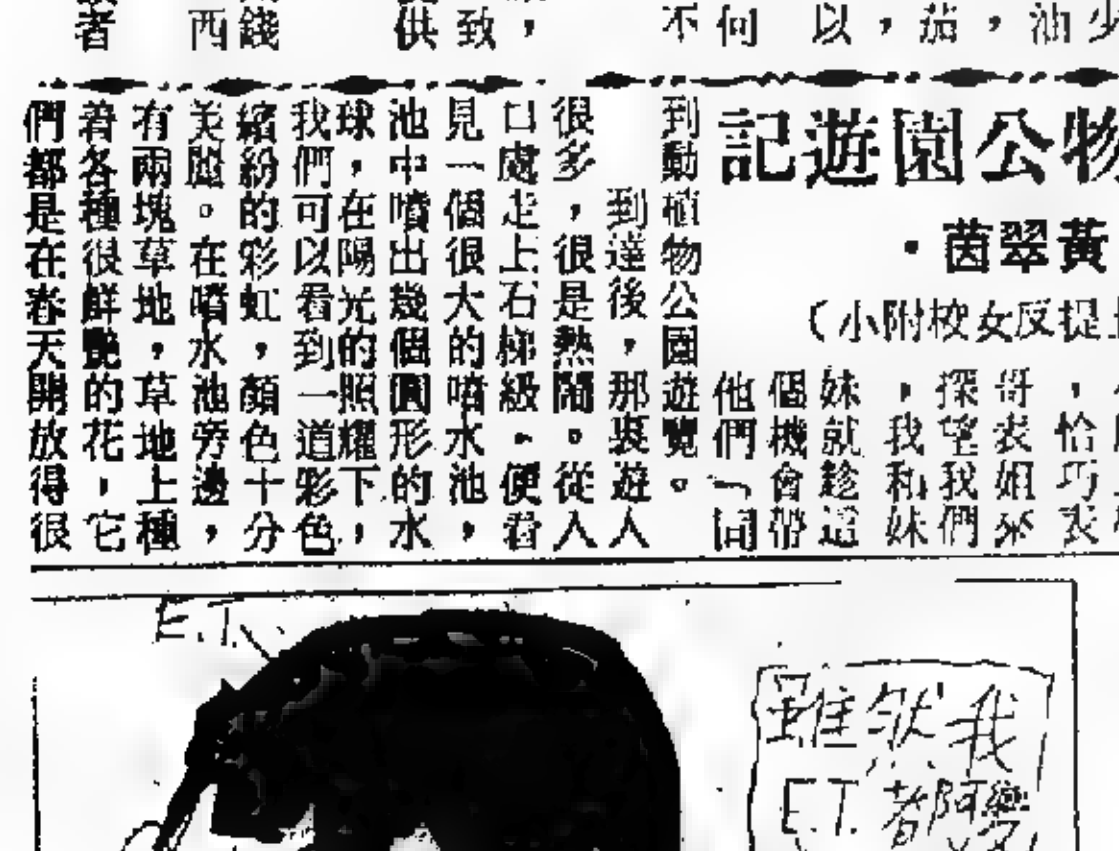 油
，
茄
，
以
何
不
，
致
供
錢
西
者
物公園遊記
黃翠茵・
提反女校附小）
，恰巧表
哥表姐來
探望我們
，我和妹
妹就趁這
個機會帶
他們一同
到動植物公園遊覽。
到達後，那裏遊人
很多，很是熱鬧。從入
口處走上石梯級，便看
見一個很大的噴水池，
池中噴出幾個圓形的水
球，在陽光的照耀下，
我們可以看到一道彩色
繽紛的彩虹，顏色十分
美麗。在噴水池旁邊，
有兩塊草地，草地上種
着各種很鮮艷的花，它
們都是在春天開放得很
E.T.
雖然我
E.T. 都阿